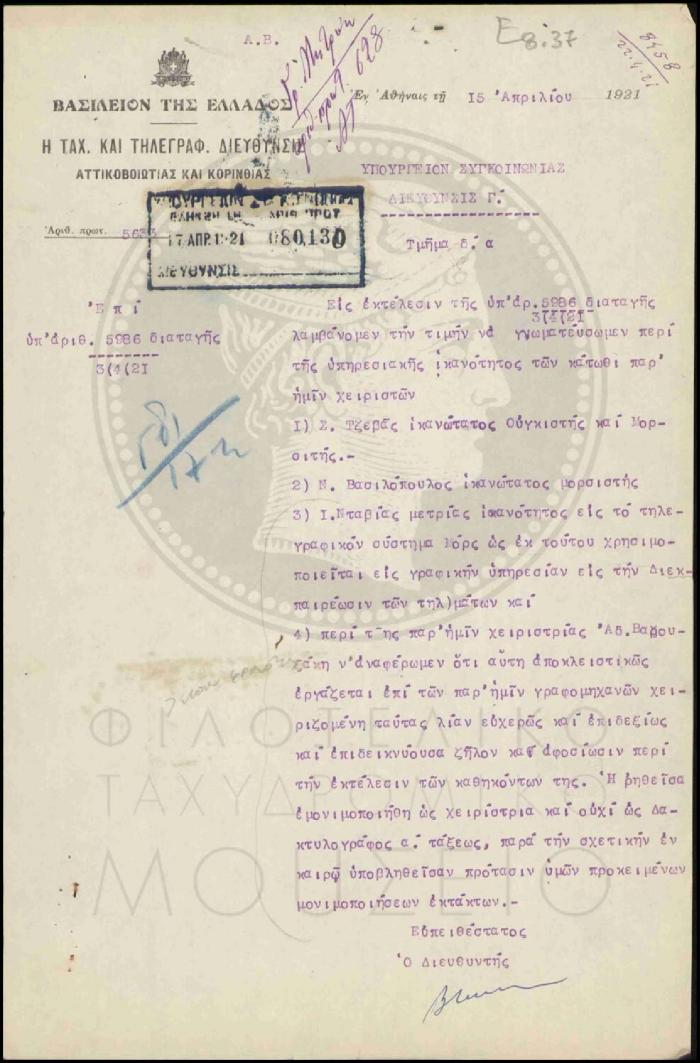 Α.Β.
Ε 8.37
8458
22.4.21
628
ΒΑΣΙΛΕΙΟΝ ΤΗΣ ΕΛΛΑΔΟΣ
Η ΤΑΧ. ΚΑΙ ΤΗΛΕΓΡΑΦ. ΔΙΕΥΘΥΝΣΙΣ
ΑΤΤΙΚΟΒΟΙΩΤΙΑΣ ΚΑΙ ΚΟΡΙΝΘΙΑΣ
Ἀριθ. πρωτ.
Ἐν Ἀθήναις τῇ 15 Ἀπριλίου 1921
ΥΠΟΥΡΓΕΙΟΝ ΣΥΓΚΟΙΝΩΝΙΑΣ
ΔΙΕΥΘΥΝΣΙΣ Γ.
Τμῆμα δ. α
17 ΑΠΡ. 1921 080,130
ΔΙΕΥΘΥΝΣΙΣ
Ἐπί
ὑπ'ἀριθ. 5986 διαταγῆς
3(4(21
Εἰς ἐκτέλεσιν τῆς ὑπ'ἀρ. 5986 διαταγῆς
3(4(21
λαμβάνομεν τήν τιμήν νά γνωματεύσωμεν περί
τῆς ὑπηρεσιακῆς ἱκανότητος τῶν κάτωθι παρ'
ἡμῖν χειριστῶν
1) Σ. Τζεβᾶς ἱκανώτατος Οὑγκιστής καί Μορ-
σιτής.-
2) Ν. Βασιλόπουλος ἱκανώτατος μορσιστής
3) Ι.Νταβίας μετρίας ἱκανότητος εἰς τό τηλε-
γραφικόν σύστημα Μόρς ὡς ἐκ τούτου χρησιμο-
ποιεῖται εἰς γραφικήν ὑπηρεσίαν εἰς τήν Διεκ-
παιρέωσιν τῶν τηλ)μάτων καί
4) περί τῆς παρ'ἡμῖν χειριστρίας Ἀδ.
ζάκη ν'ἀναφέρωμεν ὅτι αὕτη ἀποκλειστικῶς
ἐργάζεται ἐπί τῶν παρ'ἡμῖν γραφομηχανῶν χει-
ριζομένη ταύτας λίαν εὐχερῶς καί ἐπιδεξίως
καί ἐπιδεικνύουσα ζῆλον καί ἀφοσίωσιν περί
τήν ἐκτέλεσιν τῶν καθηκόντων της. Ἡ ῥηθεῖσα
ἐμονιμοποιήθη ὡς χειρίστρια καί οὐχί ὡς Δα-
κτυλογράφος α. τάξεως, παρά τήν σχετικήν ἐν
καιρῷ ὑποβληθεῖσαν πρότασιν ὑμῶν προκειμένων
μονιμοποιήσεων ἐκτάκτων.-
Εὐπειθέστατος
Ὁ Διευθυντής
ΦΙΛΟΤΕΛΙΚΟ
ΤΑΧΥΔΡΟΜΙΚΟ
ΜΟΥΣΕΙΟ